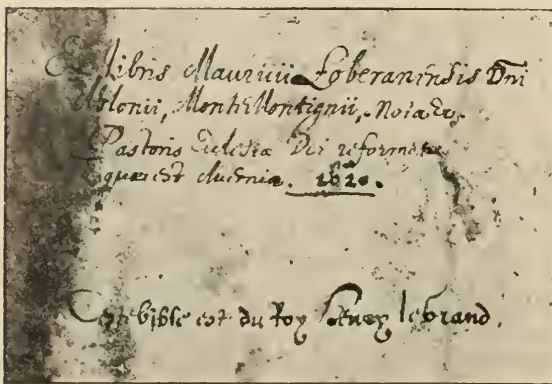 Ex libris Mauritii Loberanensis Dni
Ablonii, Monti Montignii,
Pastoris Ecclesiæ Dei reformatæ
quæ est 1620.
Ceste bible est du Roy Henry le Grand.